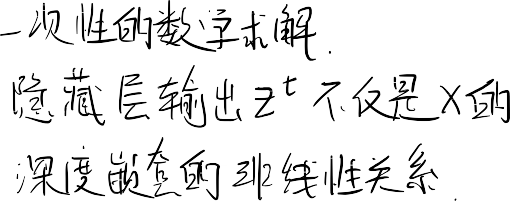 一次性的数学求解.
隐藏层输出 z^t 不仅是 X 的
深度嵌套的非线性关系.